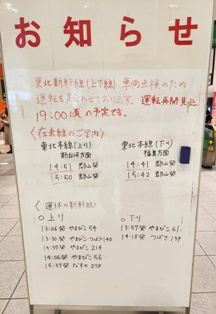 お知らせ
東北新幹線(上下線) 車両点検のため
運転を見合わせております。運転再開見込
19:00頃の予定です。
〈在来線のご案内〉
東北本線(上り) 東北本線(下り)
新白河方面 福島方面
14:51 郡山発 14:41 郡山発
15:50 郡山発 15:42 郡山発
〈運休の新幹線〉
○上り ○下り
13:06発 やまびこ54 13:57発 やまびこ61
13:30発 やまびこ つばさ140 14:18発 つばさ139
やまびこ214
14:06発 やまびこ56
なすの272